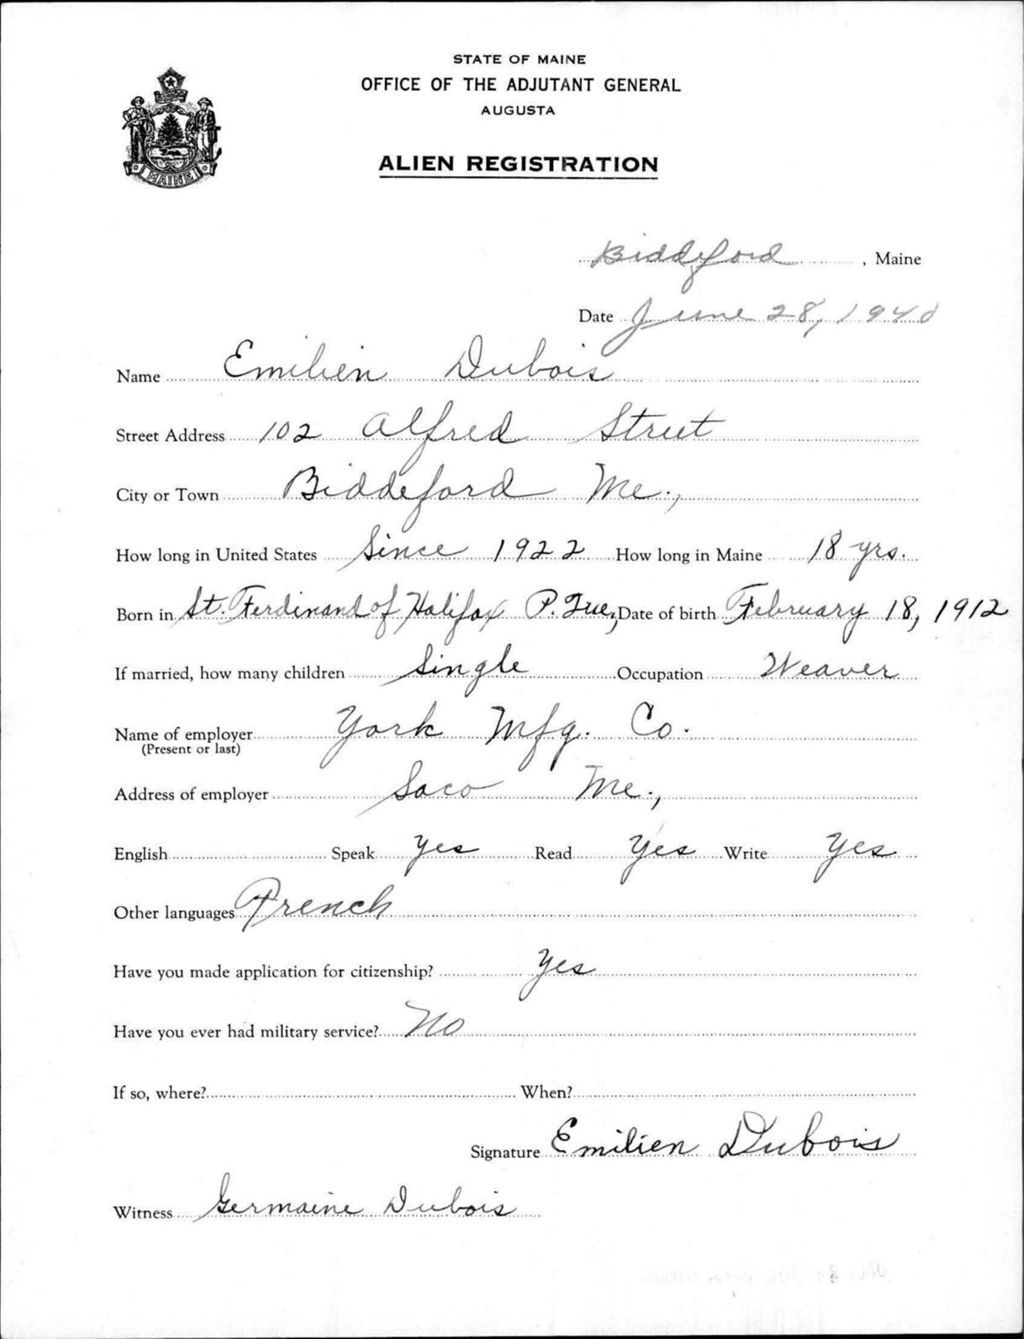 STATE OF MAINE
OFFICE OF THE ADJUTANT GENERAL
AUGUSTA
ALIEN REGISTRATION
MAINE
Biddeford, Maine
Date June 28, 1940
Name Emilien Dubois
Street Address 102 Alfred Street
City or Town Biddeford Me.,
How long in United States Since 1922 How long in Maine 18 yrs.
Born in St. Ferdinand of Halifax P. Que, Date of birth February 18, 1912
If married, how many children Single Occupation Weaver
Name of employer York Mfg. Co.
(Present or last)
Address of employer Saco Me.,
English Speak Yes Read Yes Write Yes
Other languages French
Have you made application for citizenship? Yes
Have you ever had military service? No
If so, where? When?
Signature Emilien Dubois
Witness Germaine Dubois